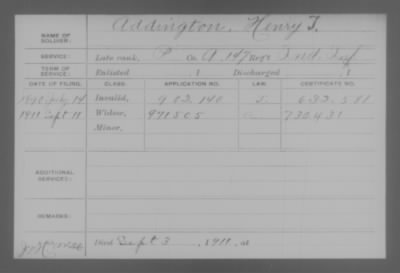 NAME OF SOLDIER: Addington, Henry T.
SERVICE: Late rank, P Co. A, 147 Reg't Ind. Inf.
TERM OF SERVICE: Enlisted , 1 Discharged , 1
DATE OF FILING. CLASS. APPLICATION NO. LAW. CERTIFICATE NO.
1890 July 14 Invalid, 902.140
1911 Sept 11 Widow, 971505 732.431
Minor,
ADDITIONAL SERVICES:
REMARKS:
Died Sept 3 , 1911, at